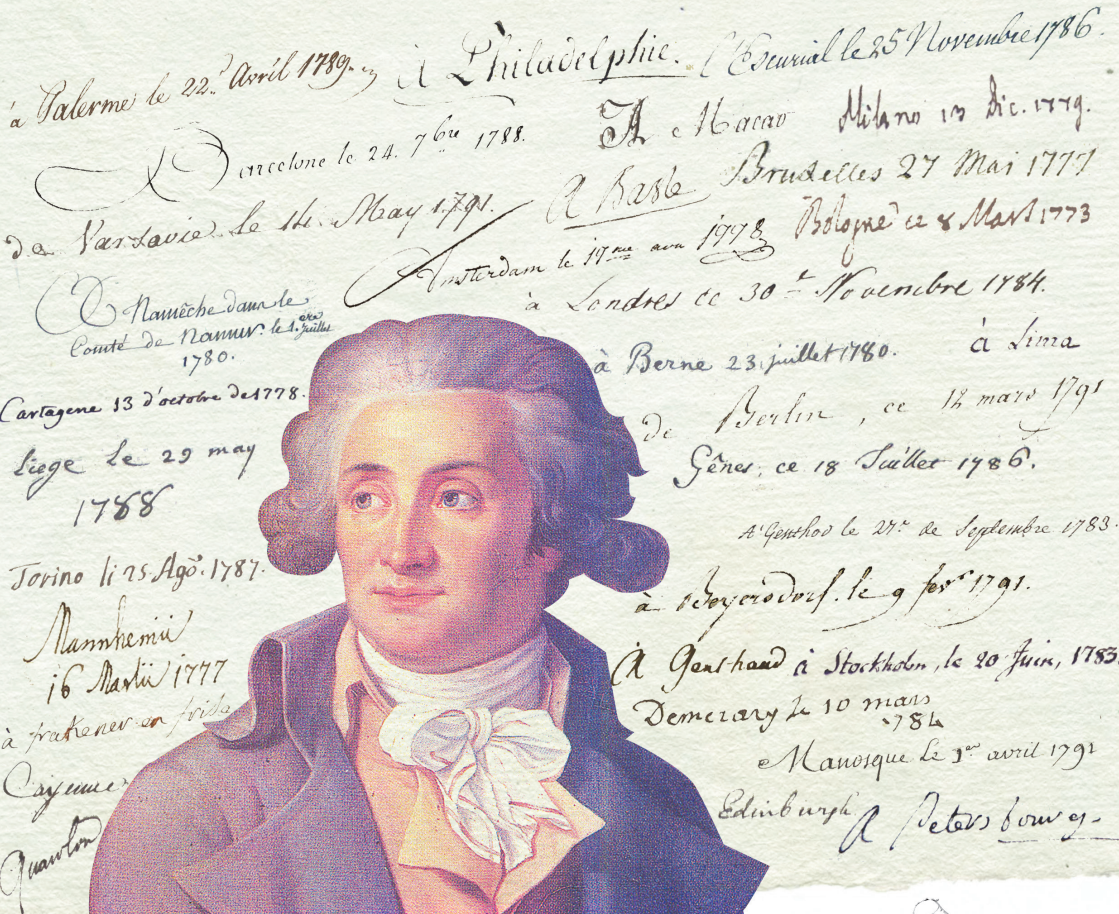 à Palerme le 22.^d Avril 1789.
à Philadelphie.
l'Escurial le 25 Novembre 1786.
Barcelone le 24. 7^bre 1788.
A Macao
Milano 13 Dic. 1779.
de Varsavie. le 14. May 1791.
A Basle
Bruxelles 27 Mai 1777
Amsterdam le 17^me
Bologne ce 8 Mars 1773
à Londres ce 30 Novembre 1784.
à Namêche dans le
Comté de Namur. le 1.^ere juillet
1780.
à Berne 23 juillet 1780.
à Lima
Cartagene 13 d'octobre de 1778.
de Berlin, ce 12 mars 1791
Liege le 29 may
1788
Gênes, ce 18 Juillet 1786.
A Genthod le 27.^e de Septembre 1783.
Torino li 25 Ago. 1787.
à le 9 fev^r 1791.
Mannhemii
16 Martii 1777
A Genthaud
à Stockholm, le 20 Juin, 1783
à franeker en frise
Demerary le 10 mars
1784
Cayenne
Manosque le 1^er avril 1791
Edinburgh
A Petersbourg.